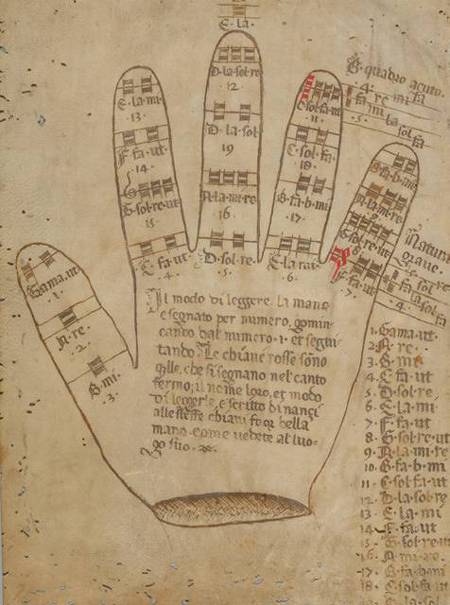 E·la·
D·la·sol·re
12
D·la·sol
19
A·la·mi·re
16
D·sol·re·
·5·
E·la·mi
·13·
F·fa·ut
·14·
G·sol·re·ut
15
C·fa·ut
·4·
C·sol·fa·ut
11
C·sol·fa·
18
B·fa·b·mi
·17·
E·la·mi
·6·
B·quadro acuto·
re mi fa
mi la sol fa
·5·
B·fa·b·mi
A·la·mi·re
9
G·sol·re·ut
8
F·fa·ut
·7·
Natura
grave·
fa sol la
la sol fa
·4·
Gama·ut·
·1·
A·re·
·2·
B·mi·
·3·
Il modo di leggere la mano
e segnato per numero, comin
cando dal numero ·1· et segui
tando· Le chiave rosse sono
qlle, che si segnano nel canto
fermo; il nome loro, et modo
di leggerle, e scritto dinanci
alle stesse chiavi fuor della
mano come vedete al luo-
go suo·
1·Gama·ut·
2·A·re·
3·B·mi·
4·C·fa·ut
5·D·sol·re·
6·E·la·mi
7·F·fa·ut
8·G·sol·re·ut
9·A·la·mi·re
10·B·fa·b·mi
11·C·sol·fa·ut
12·D·la·sol·re
13·E·la·mi
14·F·fa·ut
15·G·sol·re·ut
16·A·mi·re·
·17·B·fa·b·mi
18·C·sol·fa
D·la·sol